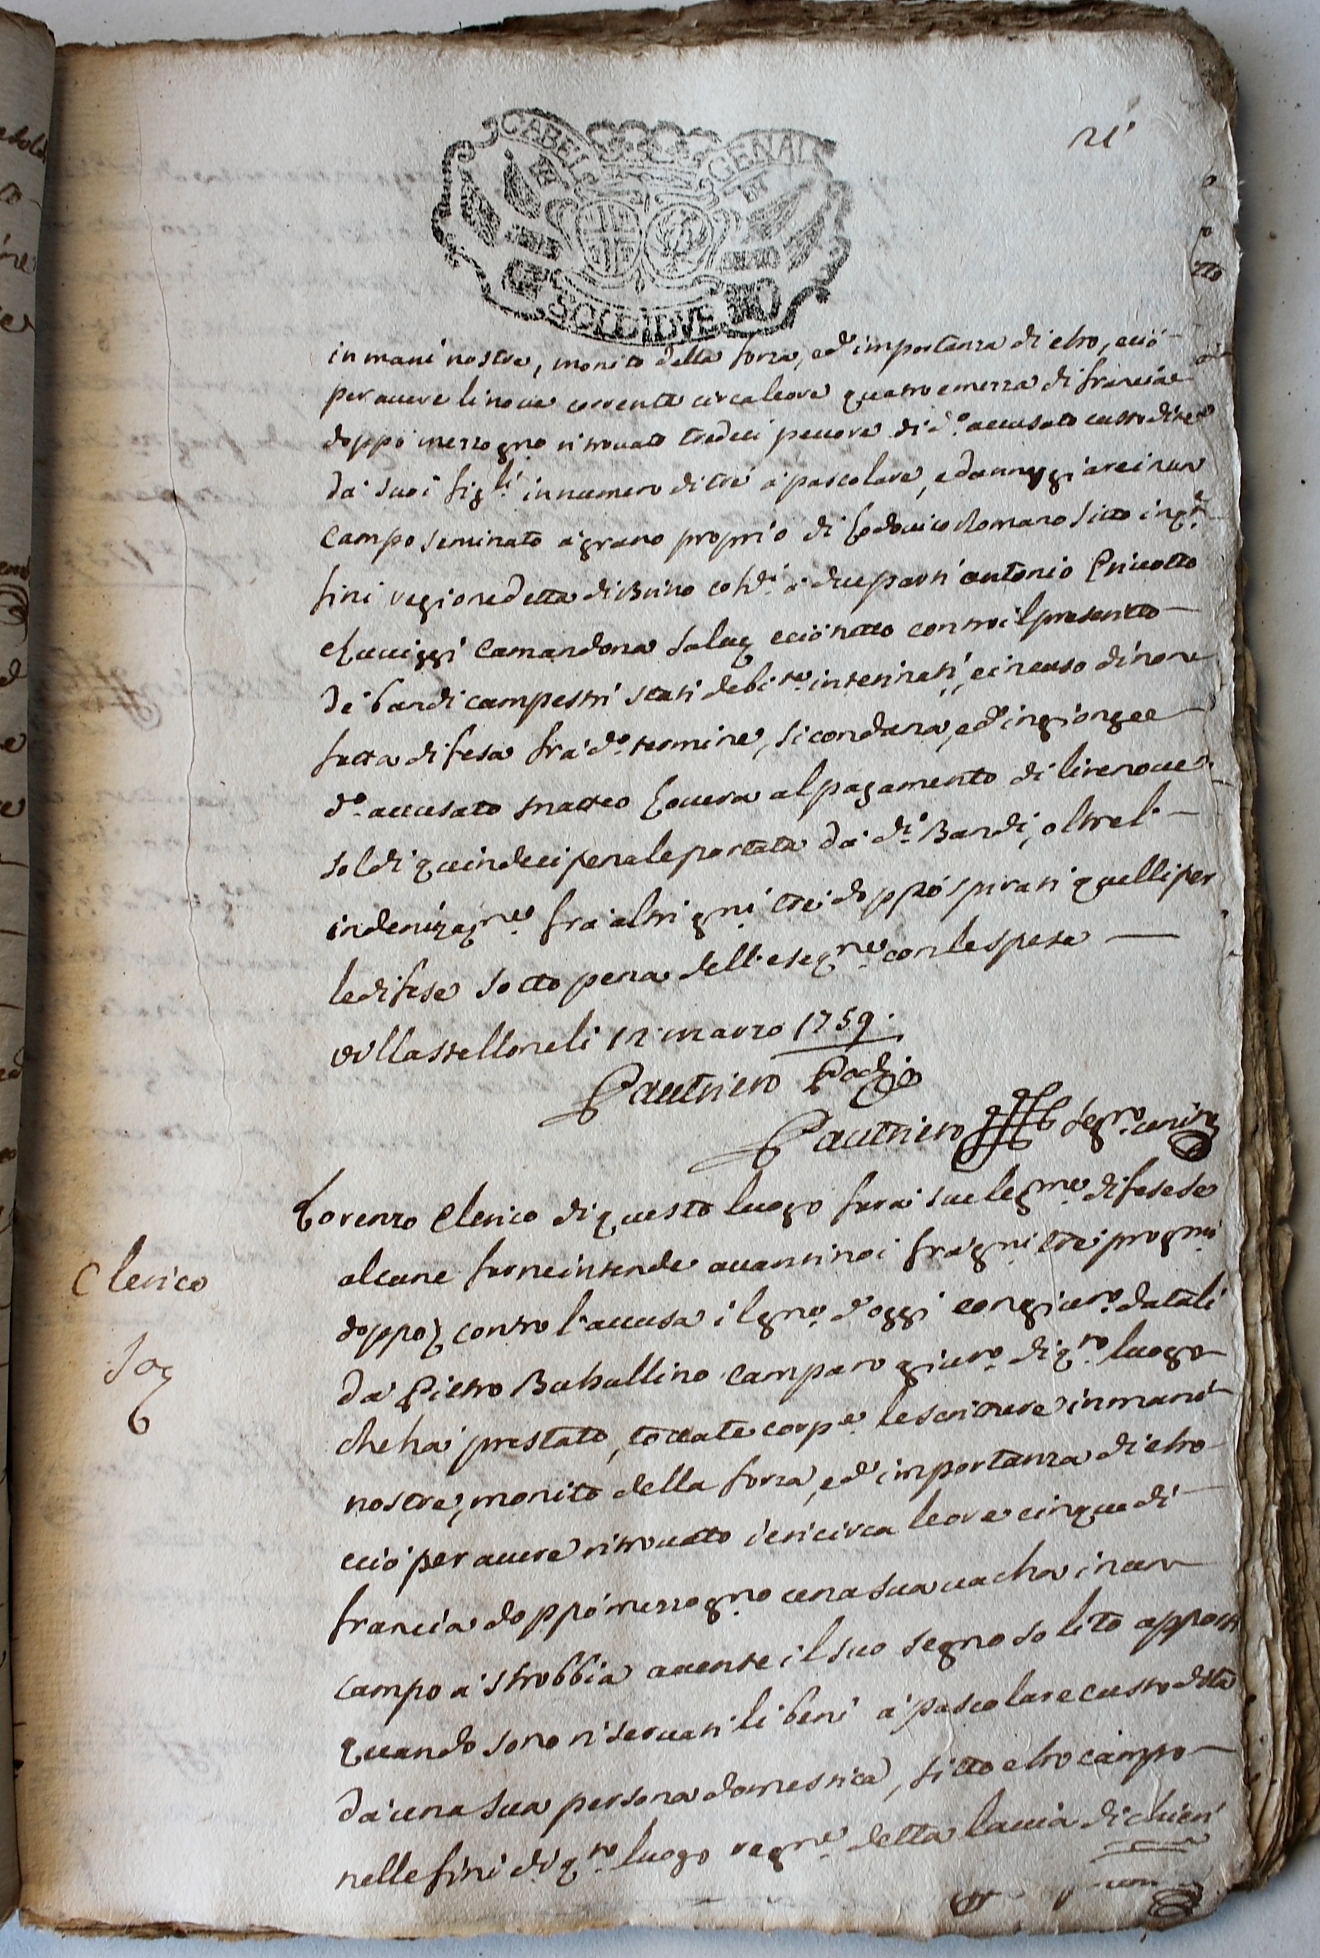 21
GABEL GENAL
SOLDI DVE
in mani nostre, monito della forza, ed' importanza di etro, e ciò
per avere li nove corrente circa le ore quatro e mezza di francia
doppo mezzogno ritrovato tredeci pecore di do accusato custodite
da suoi figli in numero di tre à pascolare, e danneggiare in un
campo seminato à grano proprio di Lodovico Romano sitto in qte
fini regione detta di Brino cohdi à due parti Antonio
e Luviggi Camandona salvg e ciò tutto contro il prescritto
de bandi campestri stati debite interinati, e in caso di non
fatta difesa frà do termine, si condana, ed' ingionge
do accusato Matteo Lovera al pagamento di lire nove
soldi quindeci pena le portata da di Bandi, oltre l'
indenizagne frà altri gni trè doppò spirati quelli per
le difese sotto pena dell'eseqne con le spese
villastellone li 12 marzo 1759.
Gautriero Podà
Gautriero Segro
Lorenzo Clerico di questo luogo farà sue legme difese se
alcune farne intende avanti noi frà gni trè progmi
doppo contro l'accusa il gno d'oggi con giuro datali
Clerico
da Pietro Baballino camparo giuro di qto luogo
che hà prestato, toccate corpe le scritture in mani
nostre, monito della forza, ed' importanza di etro
e ciò per avere ritrovato ieri circa le ore cinque di
francia doppò mezzogno una sua vacha in un
campo à strobbia avente il suo segno solito apporsi
quando sono riservati li beni à pascolare custodita
da una sua persona domestica, sitto etro campo
nelle fini di qto luogo regne detta la via di chieri